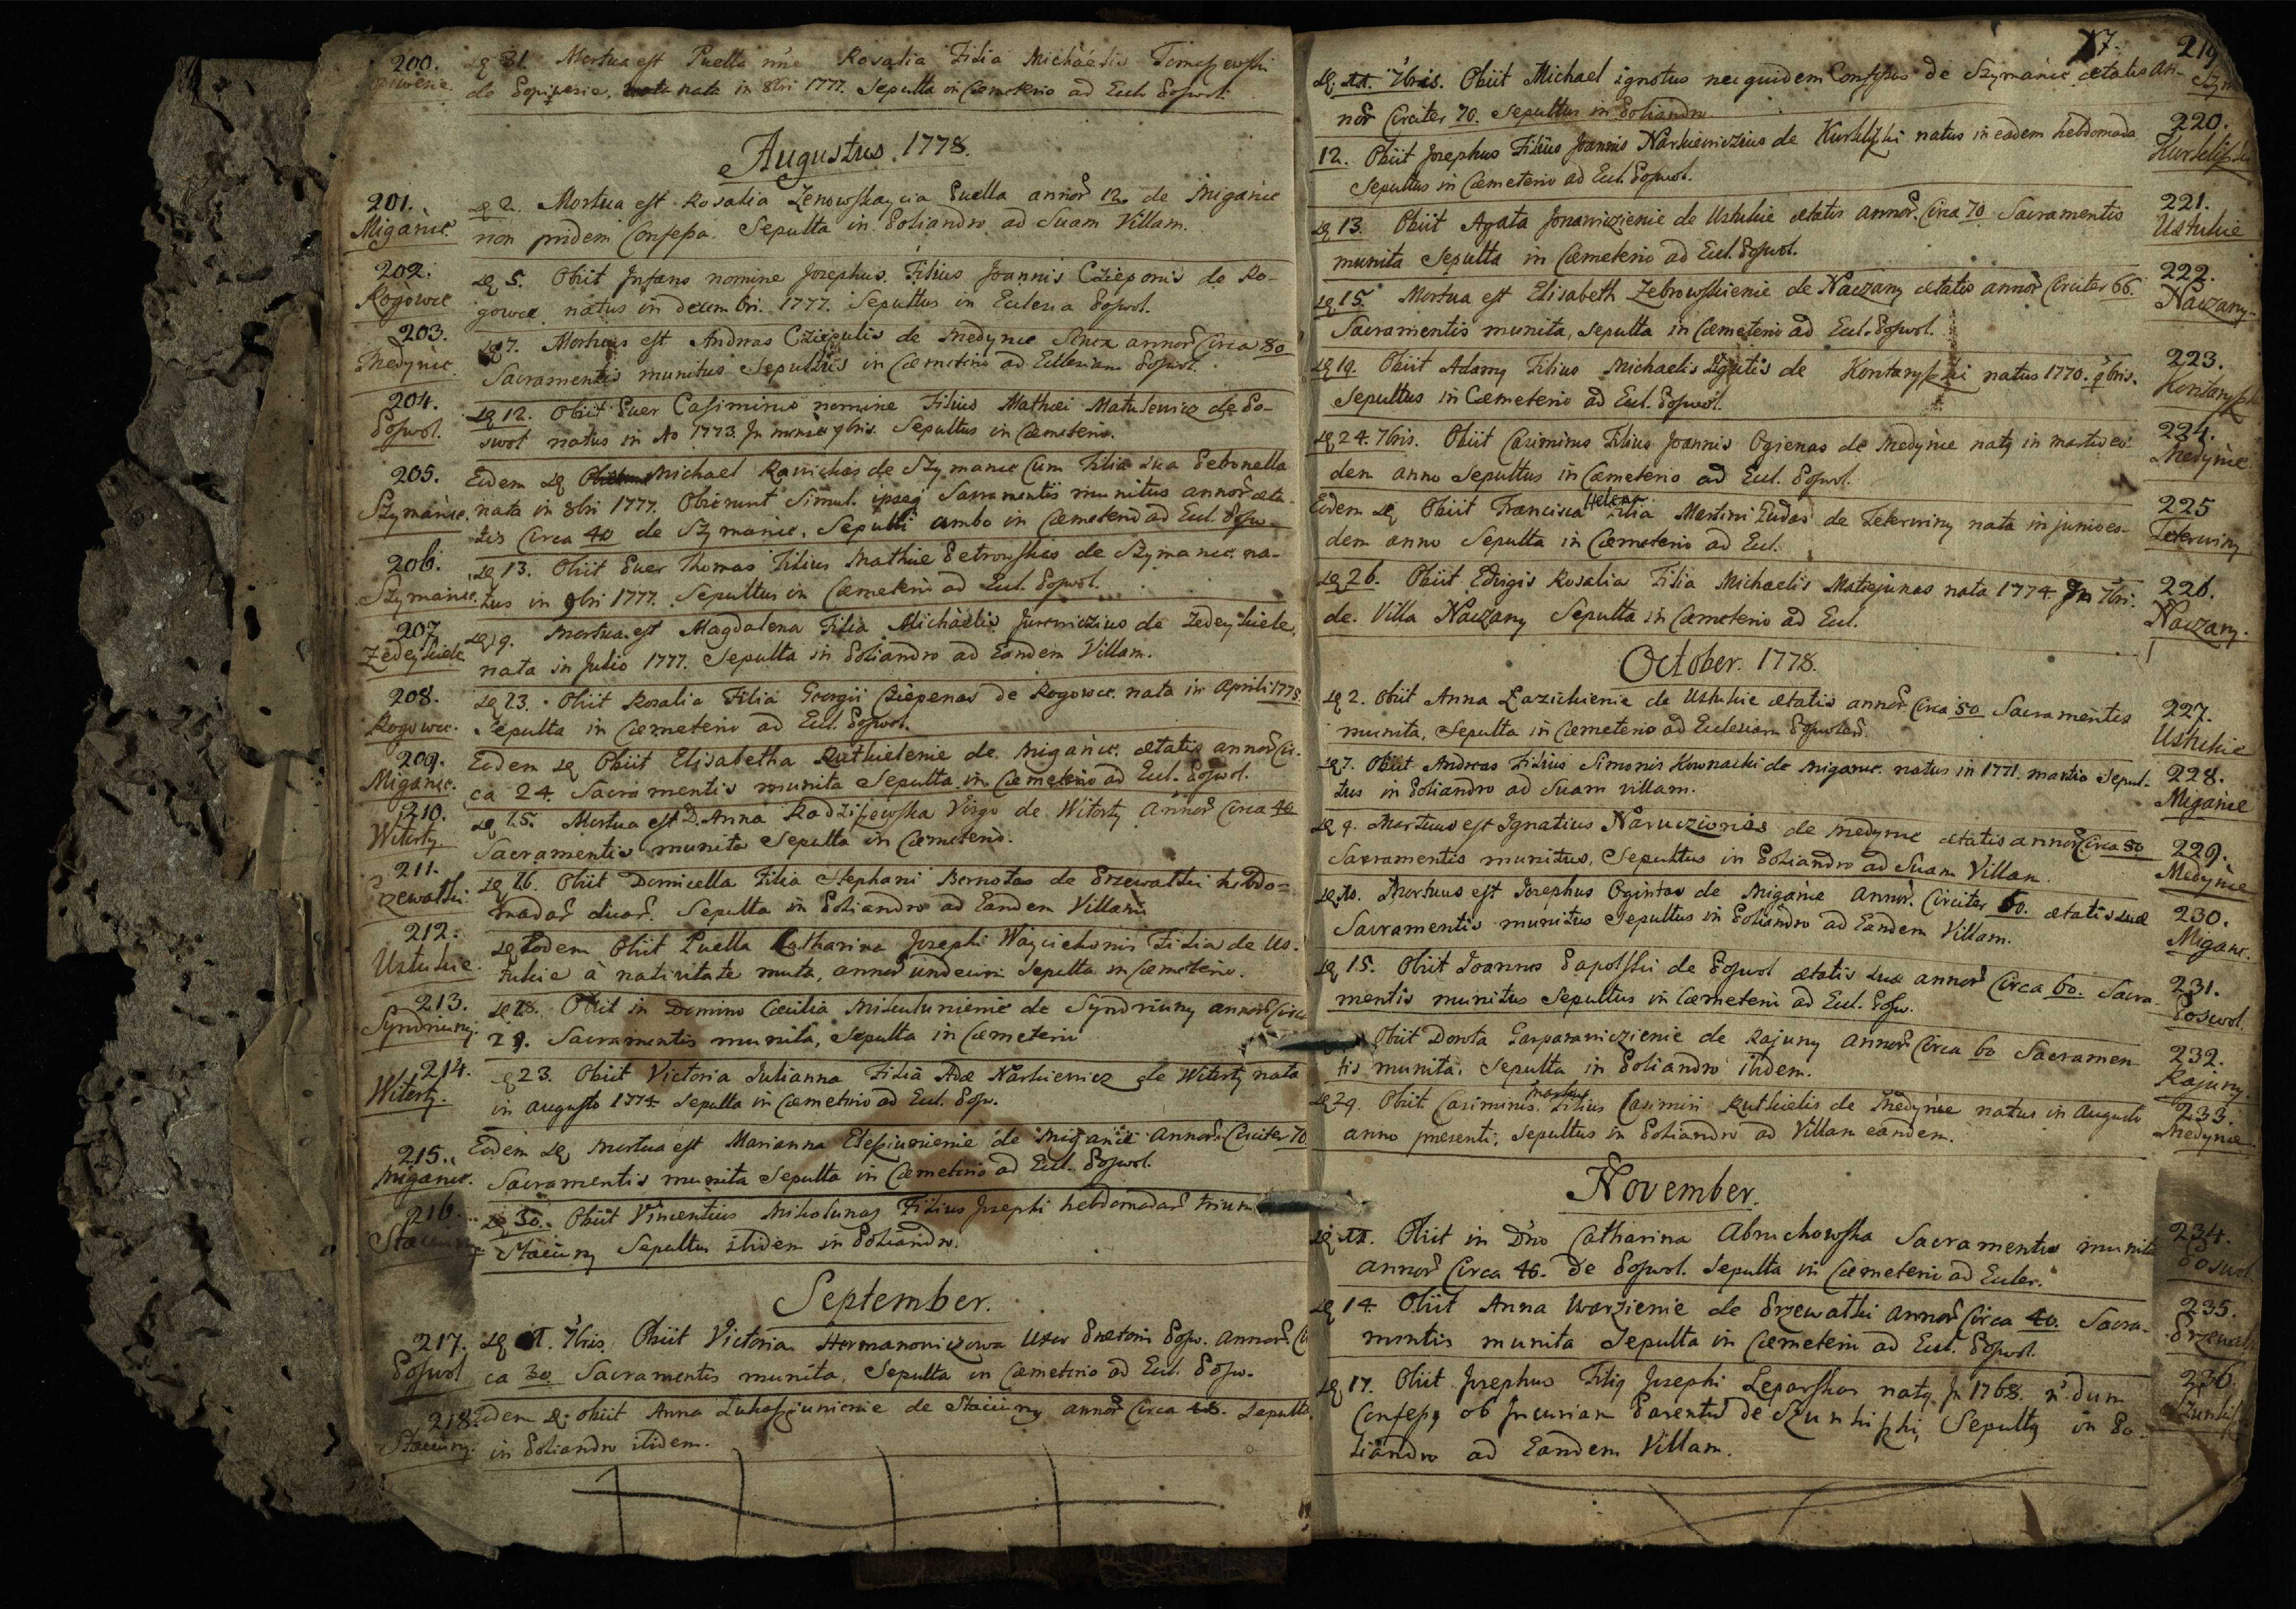 200.
31. Mortua est Puella Rosalia Filia Michaelis
nata in 8bri 1777. Sepulta in Cæmeterio ad Eccl. Poswol.
Augustus. 1778.
201.
Miganie.
2. Mortua est Rosalia Puella annor 12. de Miganie
non pridem Confessa. Sepulta in Poliandro ad Suam Villam.
202.
Rogowce
5. Obiit Infans nomine Josephus. Filius Joannis Czieponis de Ro-
gowce natus in decembri. 1777. Sepultus in Ecclesia Poswol.
203.
Medynie.
7. Mortuus est Andreas Cziepulis de Medynie Senex annor Circa 80
Sacramentis munitus Sepultus in Cæmeterio ad Ecclesiam Poswol.
204.
Poswol.
12. Obiit Puer Casimirus nomine Filius Mathæi Matulewicz de Po-
swol natus in Ao 1773. In mense 9bris. Sepultus in Cæmeterio.
205.
Szymanie.
Eodem Michael de Szymanie Cum Filia sua Petronella
nata in 8bri 1777. Obierunt Simul. Sacramentis munitus annor æta-
tis Circa 40 de Szymanie. Sepulti ambo in Cæmeterio ad Eccl. Posw.
206.
Szymanie.
13. Obiit Puer Thomas Filius Mathiæ Petrowskis de Szymanie. na-
tus in 9bri 1777. Sepultus in Cæmeterio ad Eccl. Poswol.
207.
19. Mortua est Magdalena Filia Michaelis de
nata in Julio 1777. Sepulta in Poliandro ad Eandem Villam.
208.
Rogowce.
23. Obiit Rosalia Filia Georgii Cziepenas de Rogowce. nata in Aprili 1778
Sepulta in Cæmeterio ad Eccl. Poswol.
209.
Miganie.
Eodem Obiit Elisabetha Rutkielenie de Miganie. ætatis annor Cir-
ca 24. Sacramentis munita Sepulta in Cæmeterio ad Eccl. Poswol.
210.
Witorty
15. Mortua est D. Anna Radziszewska Virgo de Witorty Annor Circa 40
Sacramentis munita Sepulta in Cæmeterio.
211.
16. Obiit Domicella Filia Stephani Bernotas de Przewalki hebdo-
madar duar. Sepulta in Poliandro ad Eandem Villam
212.
Ustukie.
Eodem Obiit Puella Catharina Josephi Woyciechonis Filia de Us-
tukie à nativitate muta, annor undecim Sepulta in Cæmeterio.
213.
Syndriuny.
18. Obiit in Domino Cæcilia Mikulunienie de Syndriuny annor Circa
29. Sacramentis munita, Sepulta in Cæmeterii
214.
Witorty.
23. Obiit Victoria Julianna Filia Adæ Narkiewicz de Witorty nata
in Augusto 1774 Sepulta in Cæmeterio ad Eccl. Posw.
215.
Miganie.
Eodem Mortua est Marianna de Miganie Annor. Circiter 70
Sacramentis munita Sepulta in Cæmeterio ad Eccl. Poswol.
216.
30. Obiit Vincentius Mikolunas Filius Josephi hebdomadar trium
Staciuny Sepultus itidem in Poliandro.
September.
217.
Poswol
7bris. Obiit Victoria Hermanowiczowa Uxor Prætoris Posw. Annor. Cir
ca 30 Sacramentis munita, Sepulta in Cæmeterio ad Eccl. Posw.
218.
Staciuny.
Eodem obiit Anna de Staciuny annor Circa Sepulta
in Poliandro itidem.
17.
219
11. 7bris. Obiit Michael ignotus nec quidem Confessus de Szymanie ætatis an-
nor Circiter 70. Sepultus in Poliandro.
220.
12. Obiit Josephus Filius Joannis Narkiewiczius de natus in eadem hebdomada
Sepultus in Cæmeterio ad Eccl. Poswol.
221.
Ustukie
13. Obiit Agata Jonawiczienie de Ustukie ætatis annor. Circa 70 Sacramentis
munita Sepulta in Cæmeterio ad Eccl. Poswol.
222.
Naczany.
15. Mortua est Elisabeth Zebrowskienie de Naczany ætatis annor Circiter 66.
Sacramentis munita, Sepulta in Cæmeterio ad Eccl. Poswol.
223.
19. Obiit Adamy Filius Michaelis de natus 1770. 9bris.
Sepultus in Cæmeterio ad Eccl. Poswol.
224.
Medynie.
24. 7bris. Obiit Casimirus Filius Joannis Ogienas de Medynie natus in martio eo-
dem anno Sepultus in Cæmeterio ad Eccl. Poswol.
225
Teterwiny
Eodem Obiit Francisca Helena Filia Martini de Teterwiny nata in junio eo-
dem anno Sepulta in Cæmeterio ad Eccl.
226.
Naczany.
26. Obiit Edvigis Rosalia Filia Michaelis Matiejunas nata 1774 In 7bri.
de Villa Naczany Sepulta in Cæmeterio ad Eccl.
October. 1778.
227.
Ustukie
2. Obiit Anna Łazickienie de Ustukie ætatis annor Circa 50 Sacramentis
munita, Sepulta in Cæmeterio ad Ecclesiam
228.
Miganie
7. Obiit Andreas Filius Simonis Kownacki de Miganie. natus in 1771. martio Sepul-
tus in Poliandro ad Suam villam.
229.
Medynie
9. Mortuus est Ignatius de Medynie ætatis annor Circa 80
Sacramentis munitus, Sepultus in Poliandro ad Suam Villam.
230.
Miganie.
10. Mortuus est Josephus Ogintas de Miganie Annor. Circiter 60. ætatis suæ
Sacramentis munitus Sepultus in Poliandro ad Eandem Villam.
231.
Poswol.
15. Obiit Joannes Sapolski de Poswol ætatis suæ annor Circa 60. Sacra-
mentis munitus Sepultus in Cæmeterii ad Eccl. Posw.
232.
Rajuny
Obiit Dorota Gasparawiczienie de Rajuny annor Circa 60 Sacramen-
tis munita. Sepulta in Poliandro itidem.
233.
Medynie.
29. Obiit Casimirus Filius Casimiri Rutkielis de Medynie natus in Augusto
anno præsenti, Sepultus in Poliandro ad Villam eandem.
November.
234.
Poswol
11. Obiit in Dno Catharina Abruchowska Sacramentis munita
annor Circa 46. de Poswol. Sepulta in Cæmeterio ad Eccles.
235.
14. Obiit Anna Warzienie de Przewalki Annor Circa 40. Sacra-
mentis munita Sepulta in Cæmeterio ad Eccl. Poswol.
236.
17. Obiit Josephus Filius Josephi Leparskas natus In 1768. dum
Confessus ob Incuriam Parentum de Sepultus in Po-
liandro ad Eandem Villam.